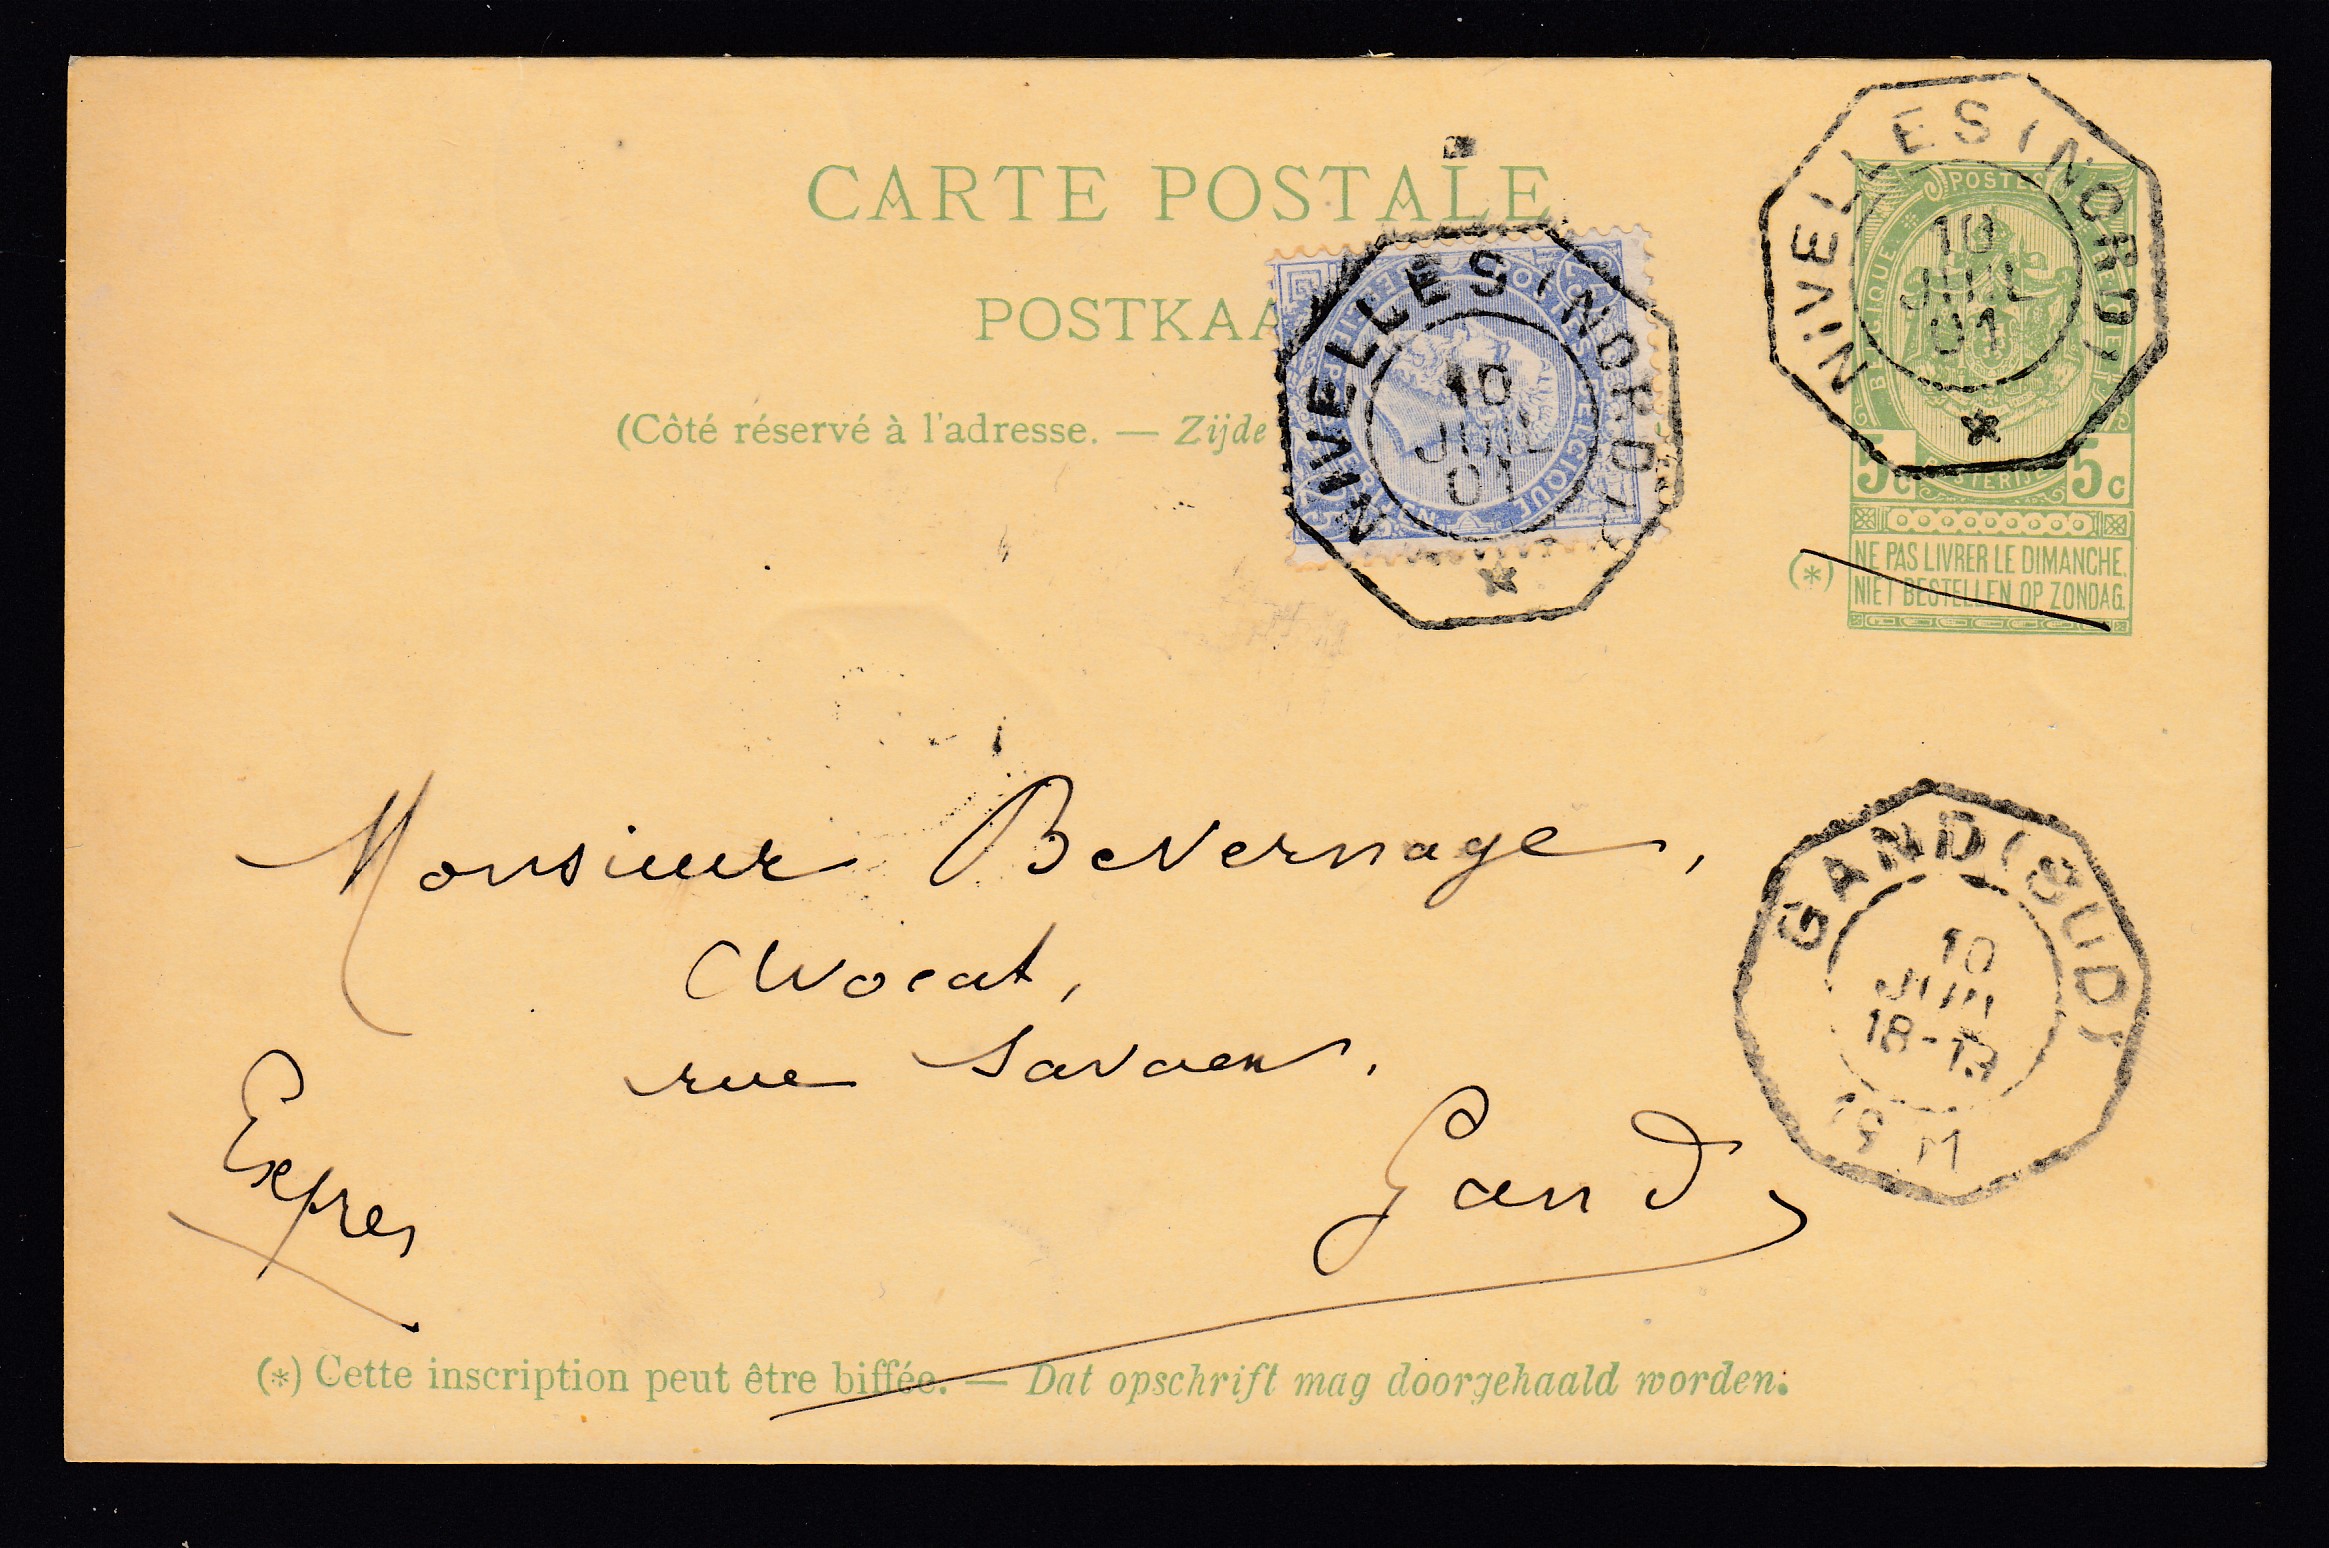 CARTE POSTALE
POSTKAA
(Côté réservé à l'adresse. — Zijde
NIVELLES (NORD)
10
JUIL
01
25
NIVELLES (NORD)
10
JUIL
01
POSTES
BELGIQUE
5c 5c
(*) NE PAS LIVRER LE DIMANCHE.
NIET BESTELLEN OP ZONDAG.
Monsieur Bevernage,
Avocat,
rue Savaen.
Gand,
Expres
GAND (SUD)
10
18-19
(*) Cette inscription peut être biffée. — Dat opschrift mag doorgehaald worden.